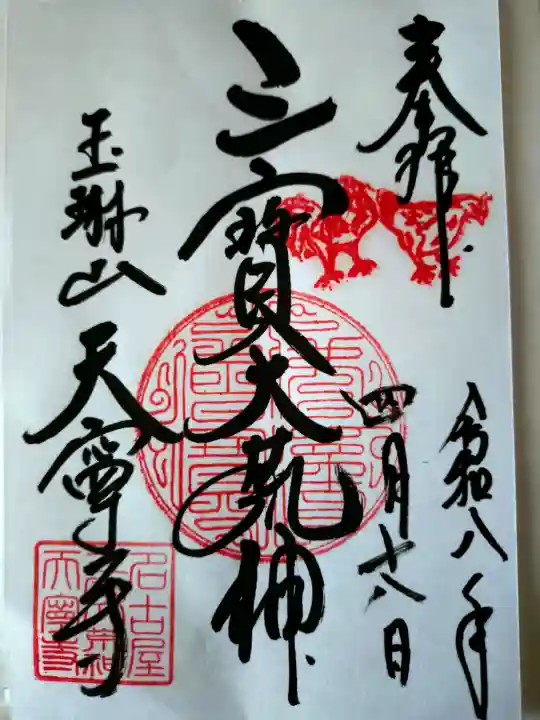 奉拝
令和八年
四月十八日
三寶大荒神
玉琳山天寧寺
名古屋
天寧寺